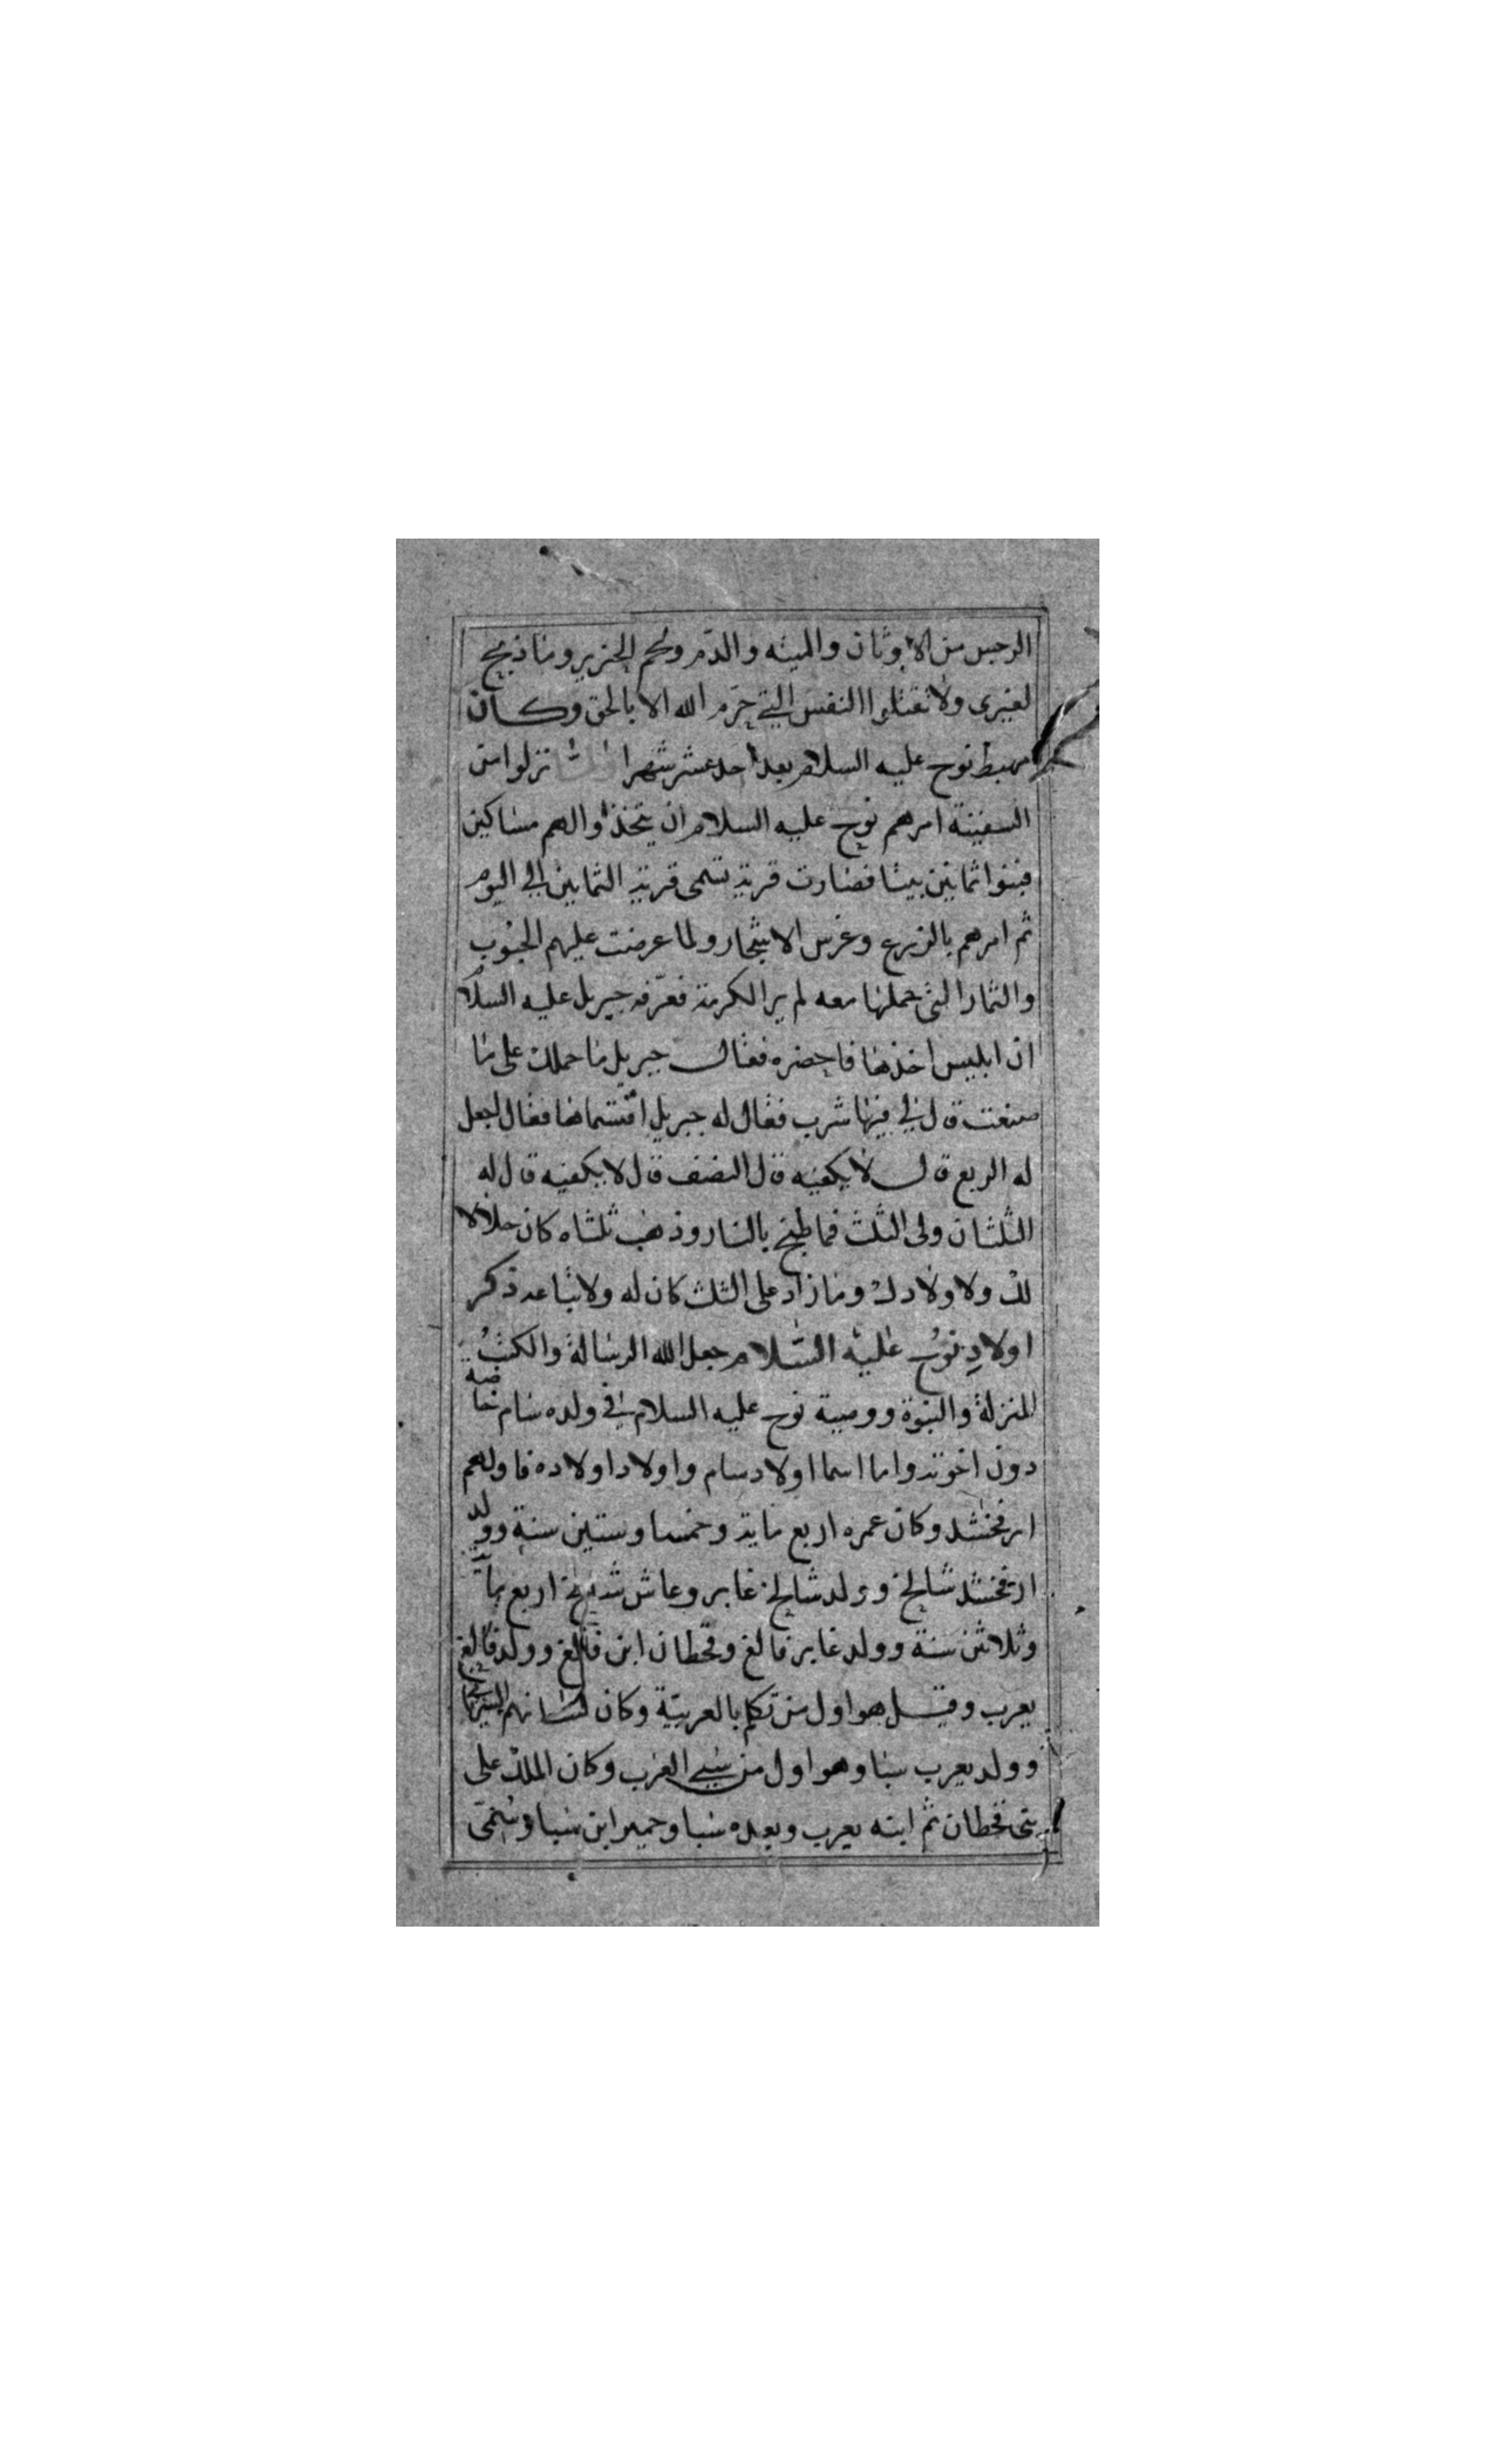 الرجس من الاوثان والميته والدّم ولحم الخنزير وما ذبح
لغيرى ولا تقتلوا النفس التي حرّم الله الا بالحق وكان
مهبط نوح عليه السلام بعد احد عشر شهرا نزلوا من
السفينة امرهم نوح عليه السلام ان يتخذوا لهم مساكين
فبنوا ثمانين بيتا فصارت قرية تسمى قرية الثمانين الي اليوم
ثم امرهم بالزرع وغرس الاشجار ولما عرضت عليهم الحبوب
والثمار التي حملها معه لم ير الكرمة فعرّفه جبريل عليه السلام
ان ابليس اخذها فاحضره فقال جبريل ما حملك على ما
صنعت قال لي فيها شرب فقال له جبريل اقتسماها فقال اجعل
له الربع قال لا يكفيه قال النصف قال لا يكفيه قال له
الثلثان ولى الثلث فما طبخ بالنار وذهب ثلثاه كان حلالا
لك ولاولادك وما زاد على الثلث كان له ولاتباعه ذكر
اولادِ نوحٍ عليه السّلام جعل الله الرسالة والكتبُ
المنزلة والنبوة ووصية نوح عليه السلام في ولده سام خاصة
دون اخوته واما اسما اولاد سام واولاد اولاده فاولهم
ارفخشد وكان عمره اربع ماية وخمسا وستين سنة وولد
ارفخشد شالخ وولد شالخ غابر وعاش شالخ اربع ماية
وثلاثن سنة وولد غابر فالغ وقحطان ابن فالغ وولد فالغ
يعرب وقيل هو اول من تكلم بالعربيّة وكان لسانهم السرياني
وولد يعرب سبا وهو اول من سبي العرب وكان الملك على
بنى قحطان ثم ابنه يعرب وبعده سبا وحمير ابن سبا وسُمّى